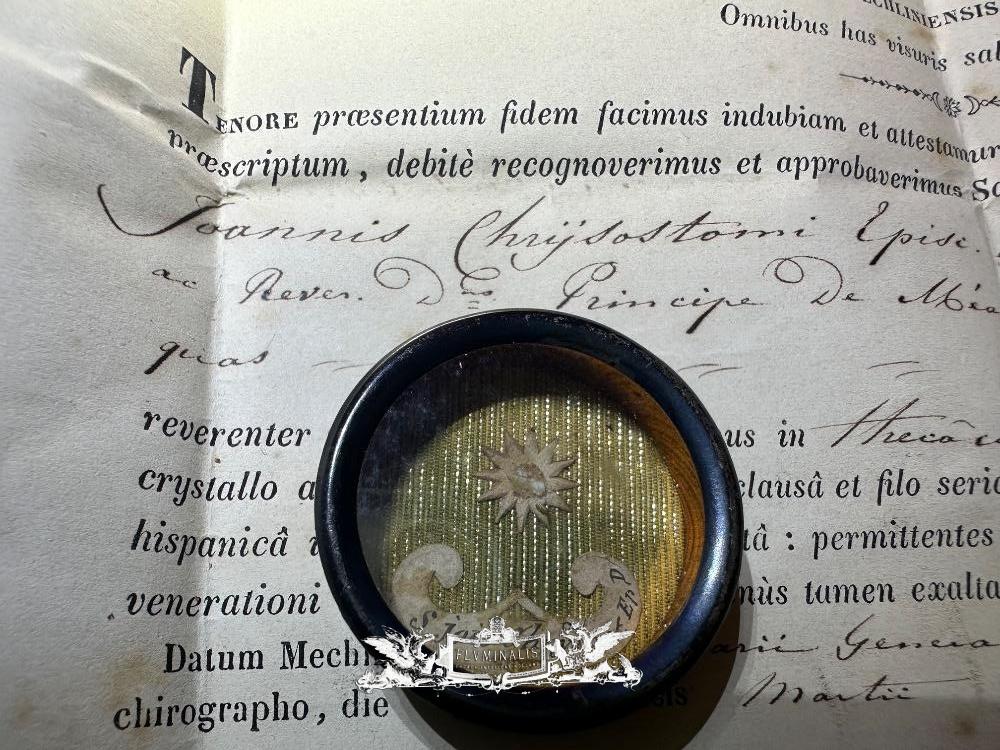 CHLINIENSIS
Omnibus has visuris sal
TENORE præsentium fidem facimus indubiam et attestamur
præscriptum, debitè recognoverimus et approbaverimus Sa
Joannis Chrÿsostomi Episc.
ac Rever. D Principe De Méa
quas
reverenter us in theca
crystallo a clausâ et filo seric
hispanicâ tâ : permittentes
venerationi nùs tamen exalta
Datum Mechl arii Genera
chirographo, die sis Martii
Ep D
FLVMINALIS